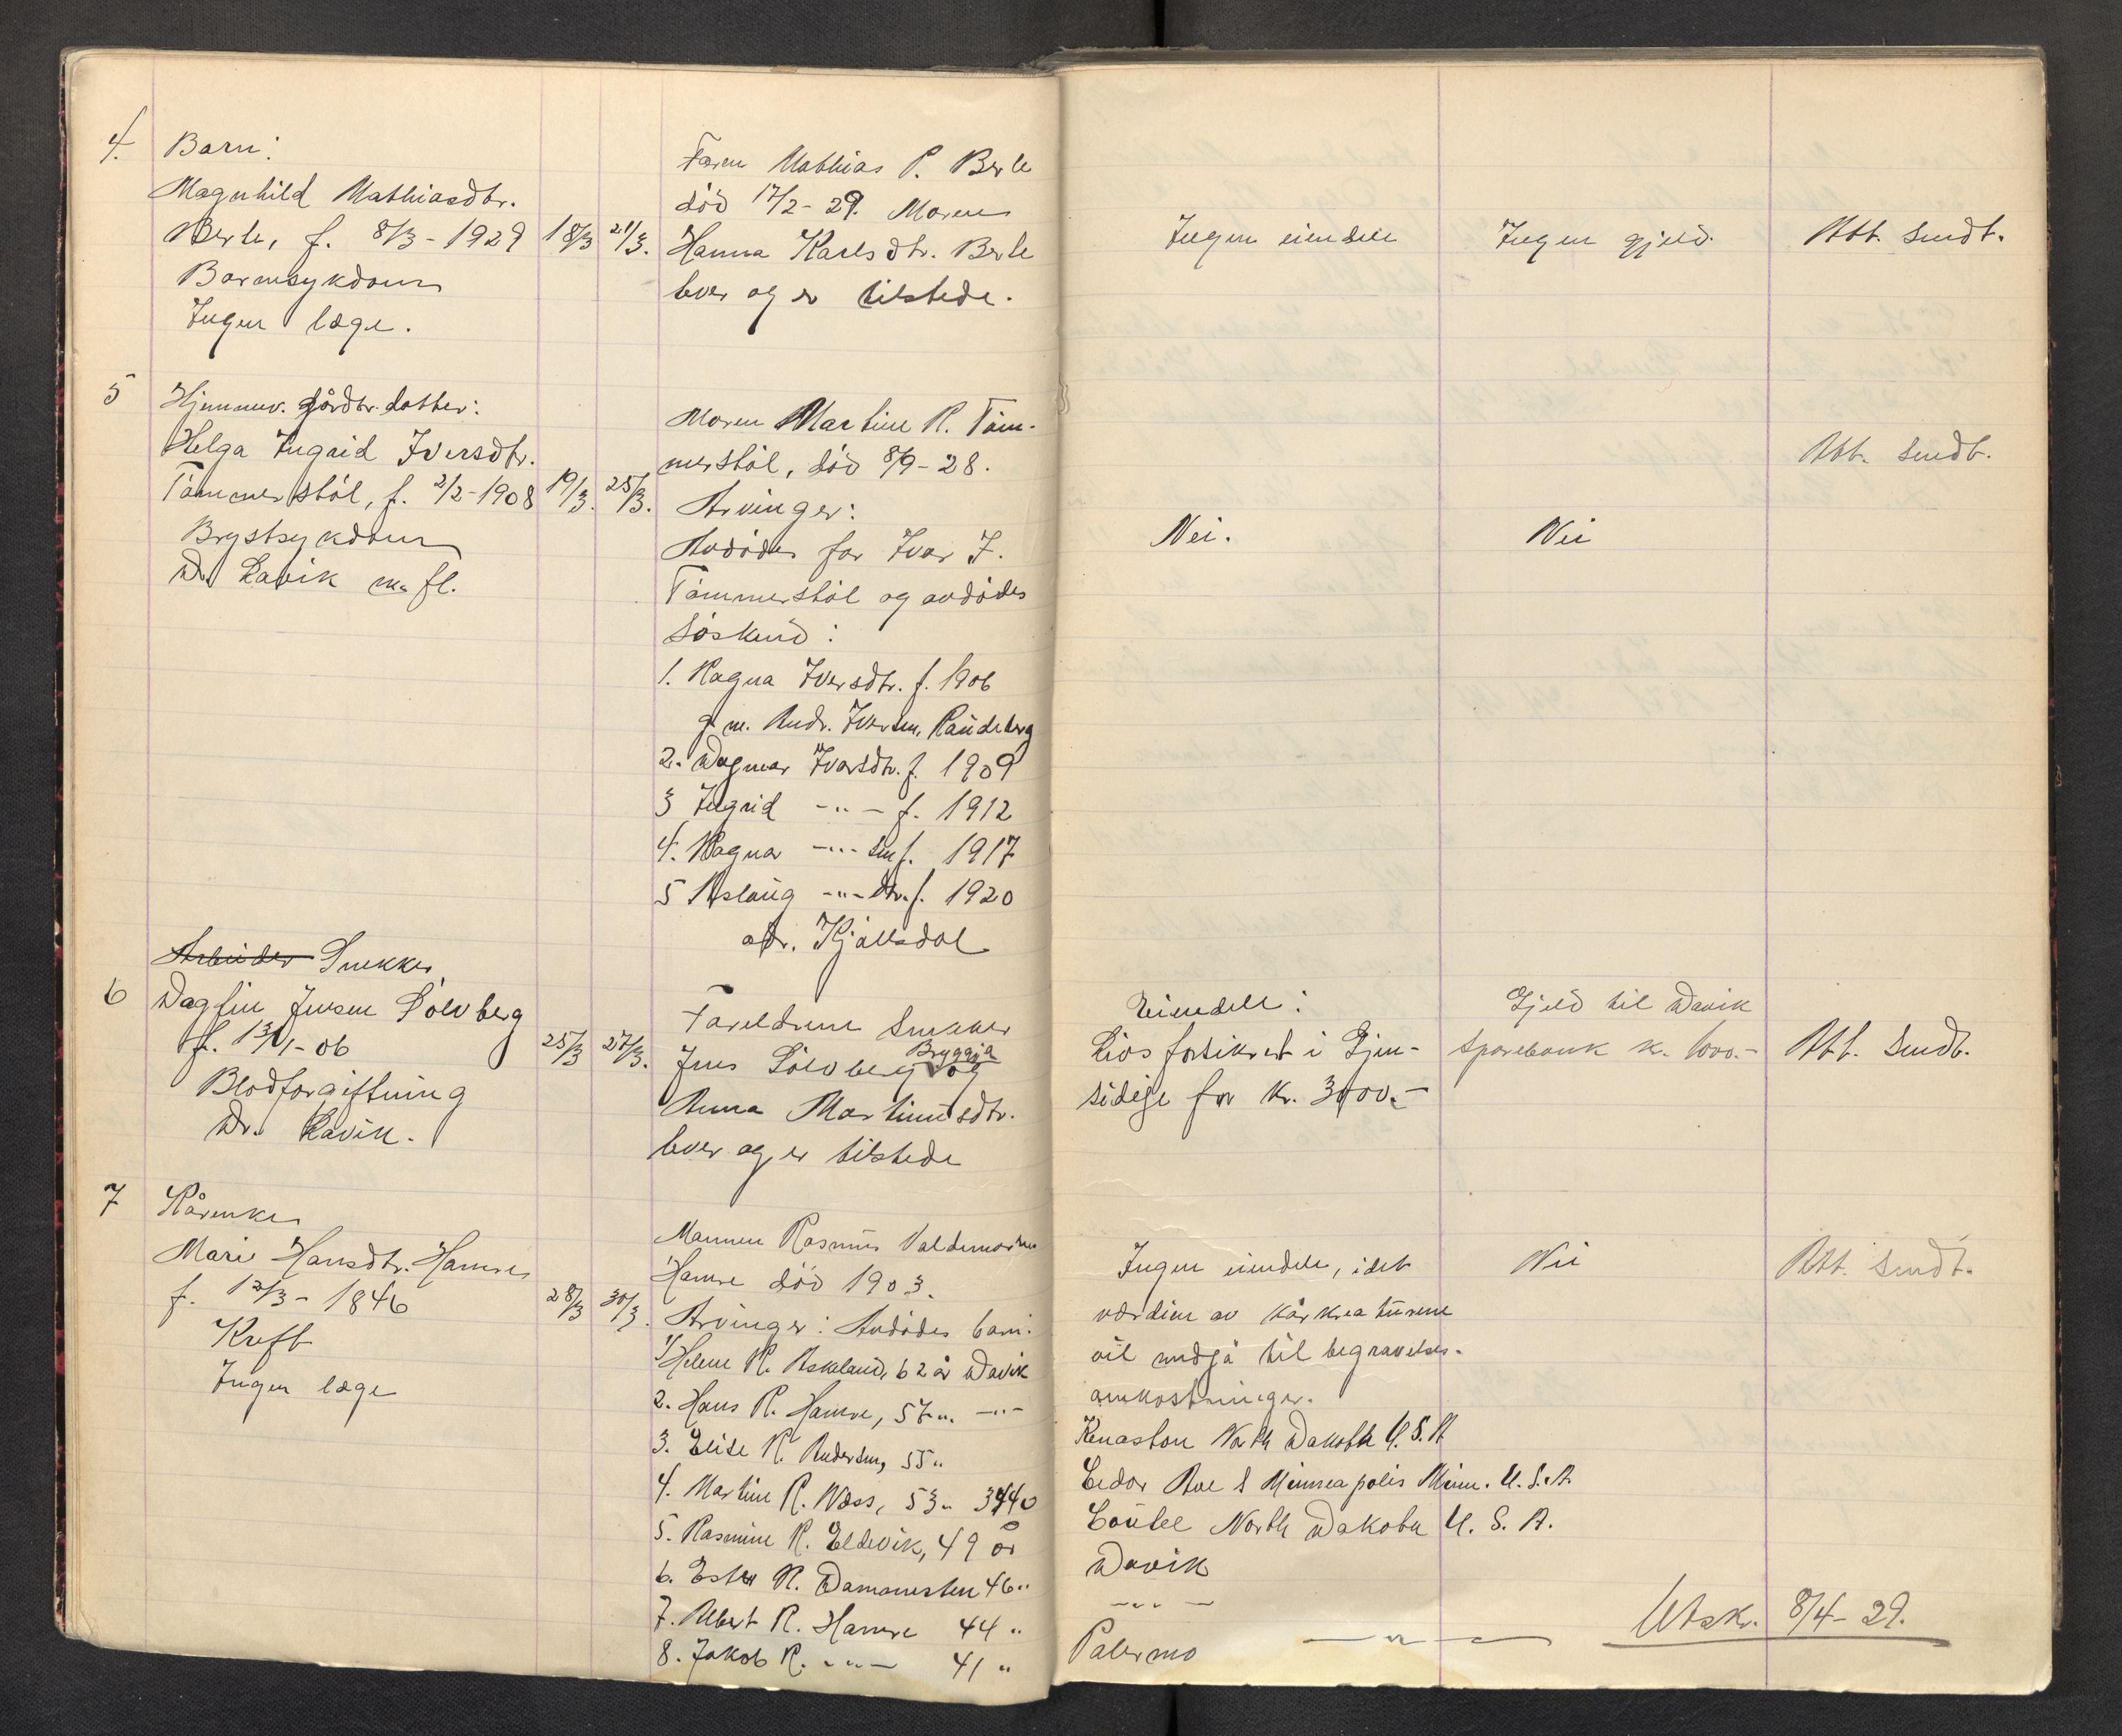 4. Barn:
Magnhild Mathiasdtr.
Berle, f. 8/3-1929 18/3 21/3.
Barnesykdom
Ingen læge.
Faren Mathias P. Berle
död 17/2-29. Moren
Hanna Karlsdtr. Berle
lever og er tilstede.
Ingen eiendele
Ingen gjeld.
Att. sendt.
5 Hjemmev. gårdbr. datter:
Helga Ingrid Iversdtr.
Tömmerstöl, f. 2/2-1908 19/3. 25/3.
Brystsykdom
Dr. Lavik m. fl.
Moren Martine R. Töm-
merstöl, död 8/9-28.
Arvinger:
Avdödes far Ivar J.
Tömmerstöl og avdödes
söskend:
1. Ragna Iversdtr. f. 1906
g. m. Andr. Iversen, Raudeberg
2. Dagmar Ivarsdtr. f. 1909
3 Ingrid -"- f. 1912
4. Ragnar -"- sen f. 1917
5 Aslaug -"- dtr. f. 1920
adr. Kjölsdal
Nei.
Nei
Att. sendt.
Arbeider Snekker
6 Dagfin Jensen Sölvberg
f. 13/1-06 25/3 27/3.
Blodforgiftning
Dr. Lavik.
Foreldrene Snekker
Bryggja
Jens Sölvberg og
Anna Martinusdtr.
lever og er tilstede
Eiendele:
Livsforsikret i Gjen-
sidige for kr. 3000.-
Gjeld til Davik
Sparebank kr. 1000.-
Att. sendt.
7 Kårenke
Mari Hansdtr. Hamre
f. 12/3-1846 28/3 30/3.
Kreft
Ingen læge
Mannen Rasmus Valdemarsen
Hamre död 1903.
Arvinger: Avdödes barn:
1 Helene R. Askeland, 62 år Davik
2. Hans R. Hamre, 57 " -"-
3. Elise R. Andersen, 55 "
4. Martine R. Næss, 53 " 3440
5. Rasmine R. Eldevik, 49 år
6. Ester R. Damanesten 46 "
7. Albert R. Hamre 44 "
8. Jakob R. -"- 41 "
Ingen eiendele, idet
værdien av kårkreaturene
vil medgå til begravelses-
omkostninger.
Kenaston North Dakota U.S.A
Cedar Ave S Minneapolis Minn. U.S.A.
Coulee North Dakota U. S. A.
Davik
-"-
Palermo -"-
Nei
Att. sendt.
Utskr. 8/4-29.